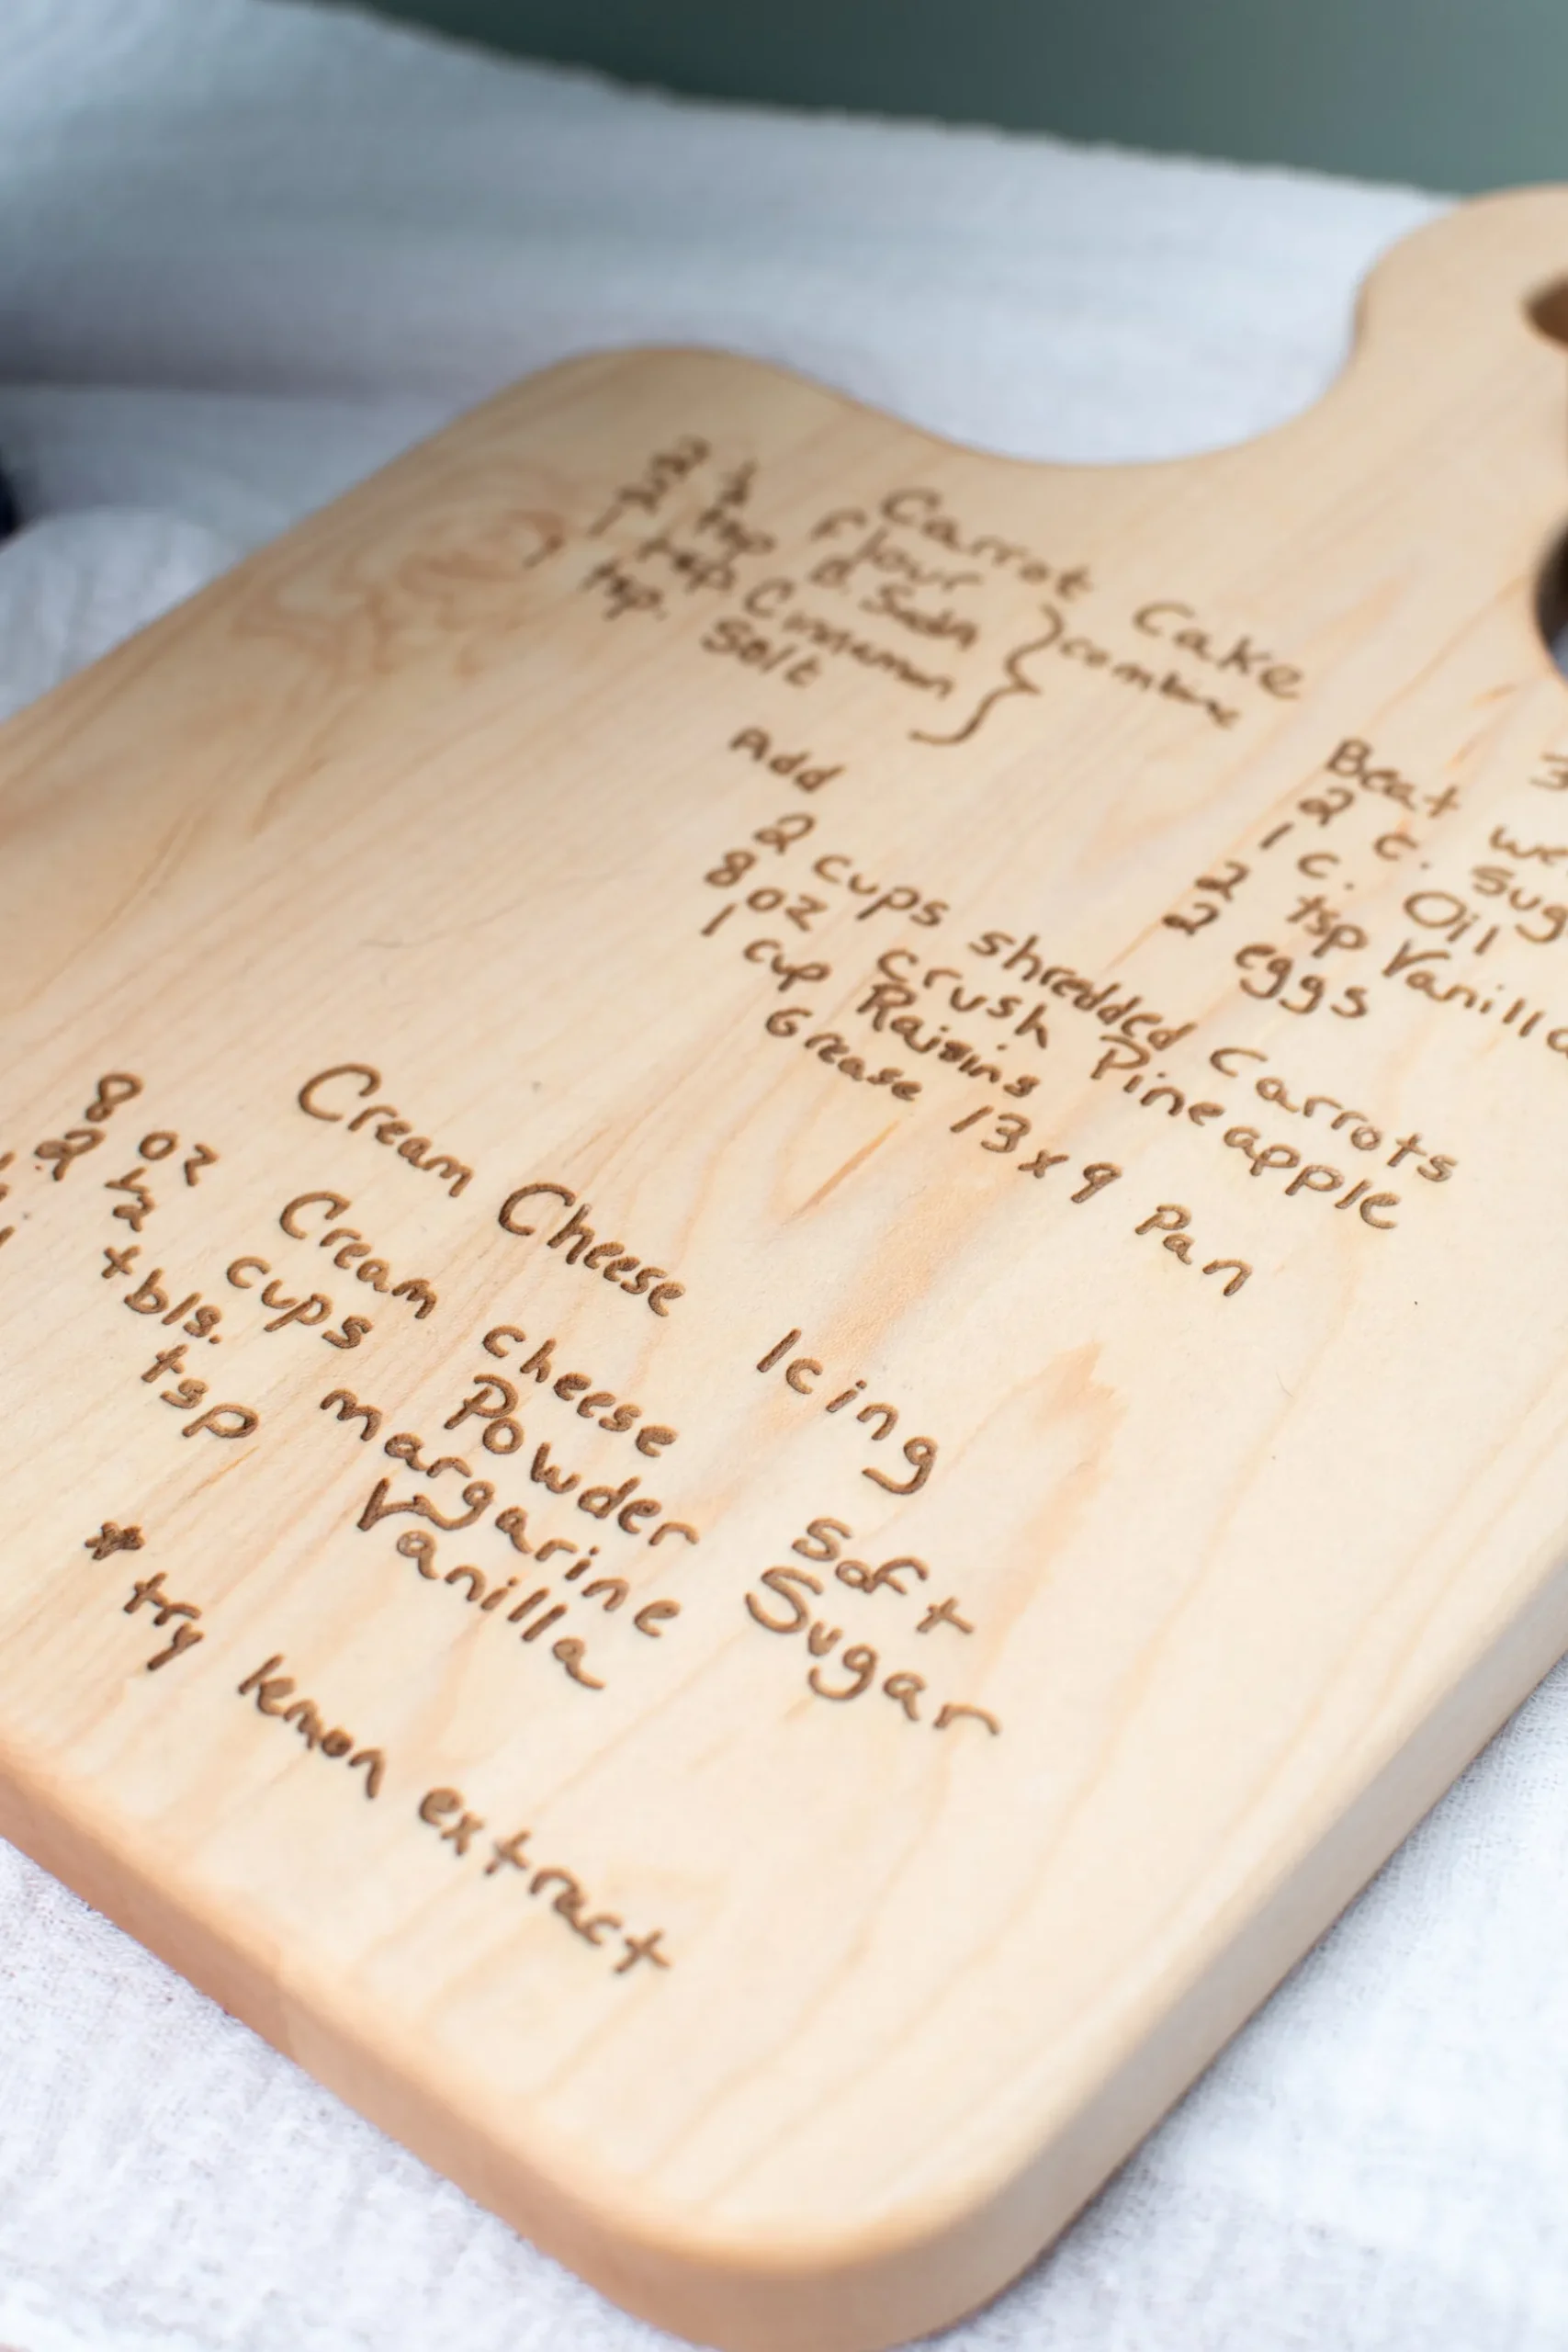 Carrot Cake
2 ½ flour
2 tsp B. Soda
1 tsp. Cinnamon
1 tsp. Salt
} combine
3
Beat
2 c.
1 c. Oil
2 tsp Vanilla
2 eggs
Add
2 cups shredded Carrots
8 oz crush Pineapple
1 cup Raisins
Grease 13x9 Pan
Cream Cheese Icing
8 oz Cream cheese Soft
2 ½ cups Powder Sugar
tbls. margarine
tsp Vanilla
* try lemon extract